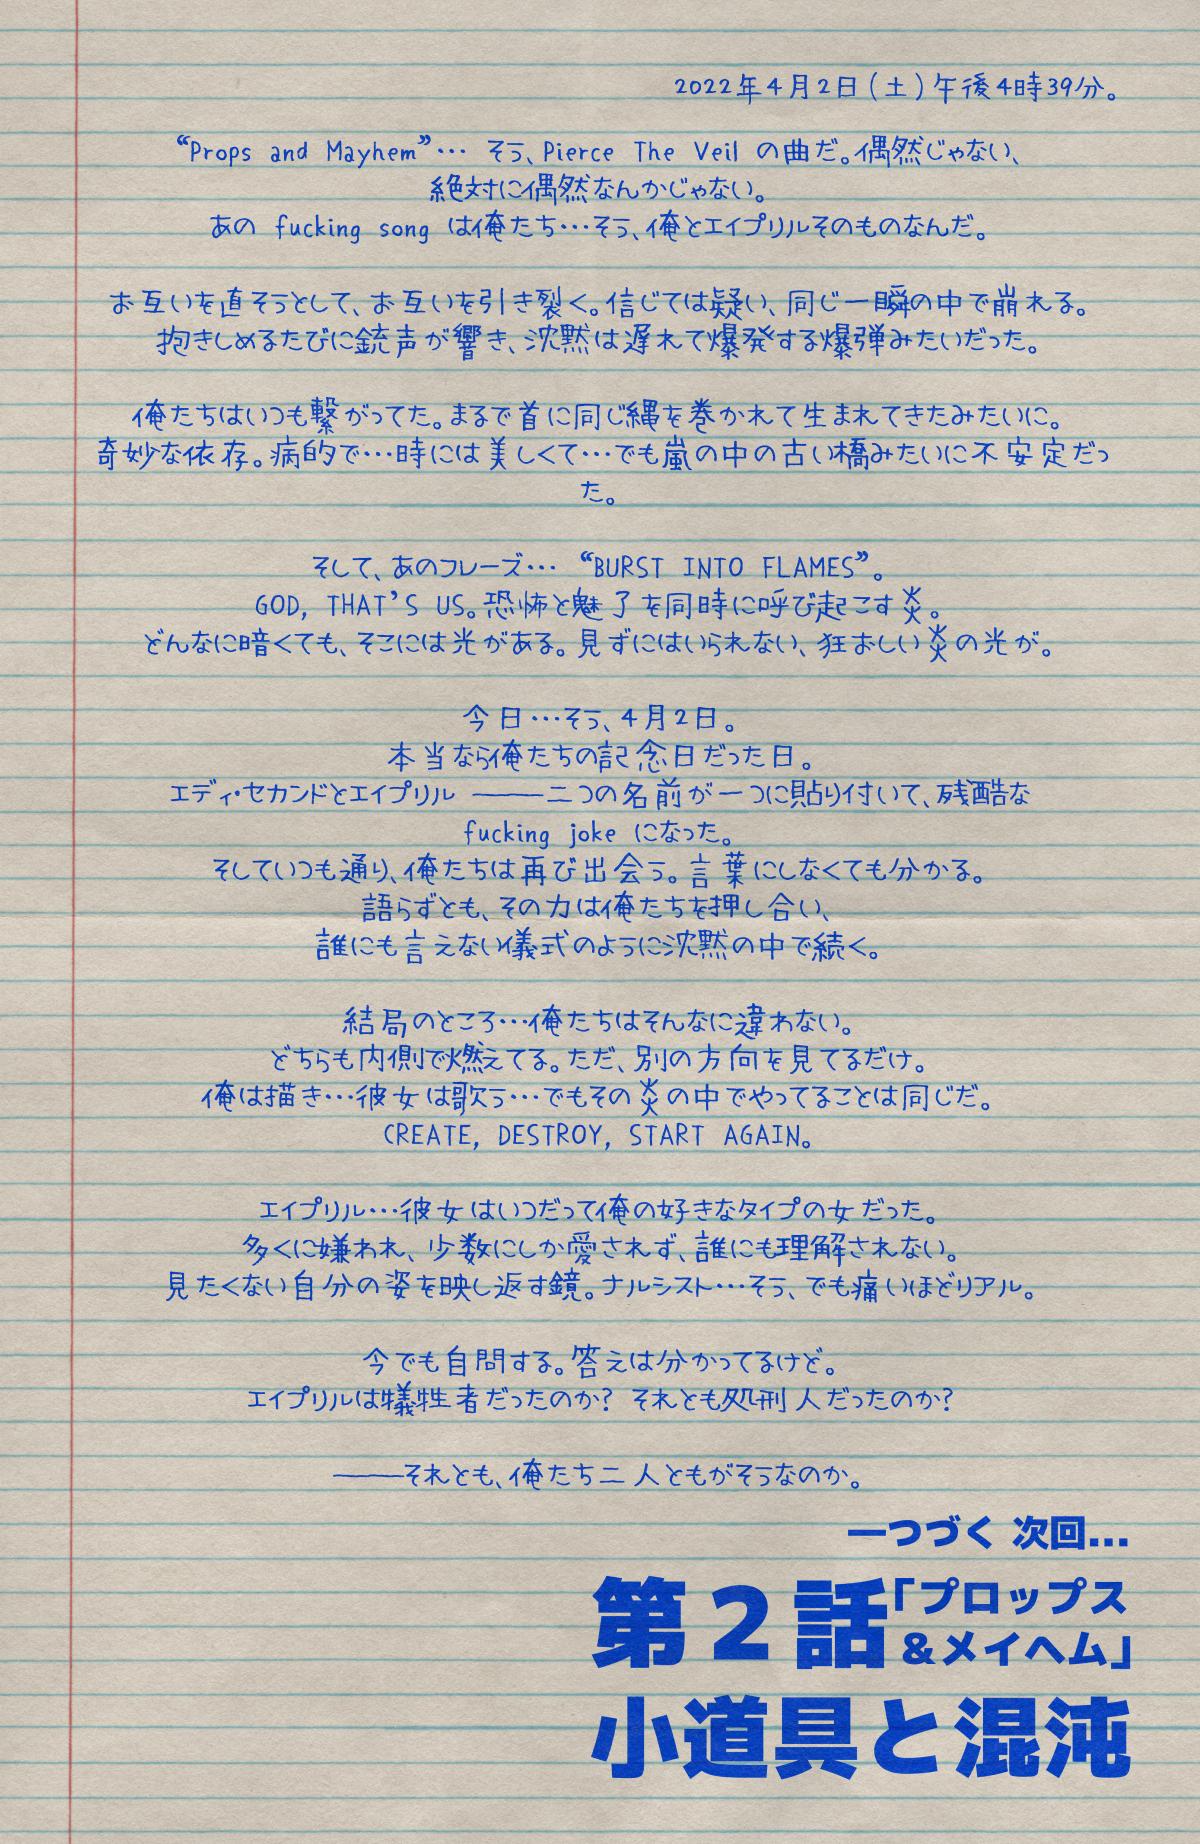 2022年4月2日(土)午後4時39分。
“Props and Mayhem”… そう、Pierce The Veil の曲だ。偶然じゃない、
絶対に偶然なんかじゃない。
あの fucking song は俺たち…そう、俺とエイプリルそのものなんだ。
お互いを直そうとして、お互いを引き裂く。信じては疑い、同じ一瞬の中で崩れる。
抱きしめるたびに銃声が響き、沈黙は遅れて爆発する爆弾みたいだった。
俺たちはいつも繋がってた。まるで首に同じ縄を巻かれて生まれてきたみたいに。
奇妙な依存。病的で…時には美しくて…でも嵐の中の古い橋みたいに不安定だっ
た。
そして、あのフレーズ… “BURST INTO FLAMES”。
GOD, THAT’S US。恐怖と魅了を同時に呼び起こす炎。
どんなに暗くても、そこには光がある。見ずにはいられない、狂おしい炎の光が。
今日…そう、4月2日。
本当なら俺たちの記念日だった日。
エディ・セカンドとエイプリル ———二つの名前が一つに貼り付いて、残酷な
fucking joke になった。
そしていつも通り、俺たちは再び出会う。言葉にしなくても分かる。
語らずとも、その力は俺たちを押し合い、
誰にも言えない儀式のように沈黙の中で続く。
結局のところ…俺たちはそんなに違わない。
どちらも内側で燃えてる。ただ、別の方向を見てるだけ。
俺は描き…彼女は歌う…でもその炎の中でやってることは同じだ。
CREATE, DESTROY, START AGAIN。
エイプリル…彼女はいつだって俺の好きなタイプの女だった。
多くに嫌われ、少数にしか愛されず、誰にも理解されない。
見たくない自分の姿を映し返す鏡。ナルシスト…そう、でも痛いほどリアル。
今でも自問する。答えは分かってるけど。
エイプリルは犠牲者だったのか? それとも処刑人だったのか?
———それとも、俺たち二人ともがそうなのか。
—つづく 次回...
第2話「プロップス
&メイヘム」
小道具と混沌